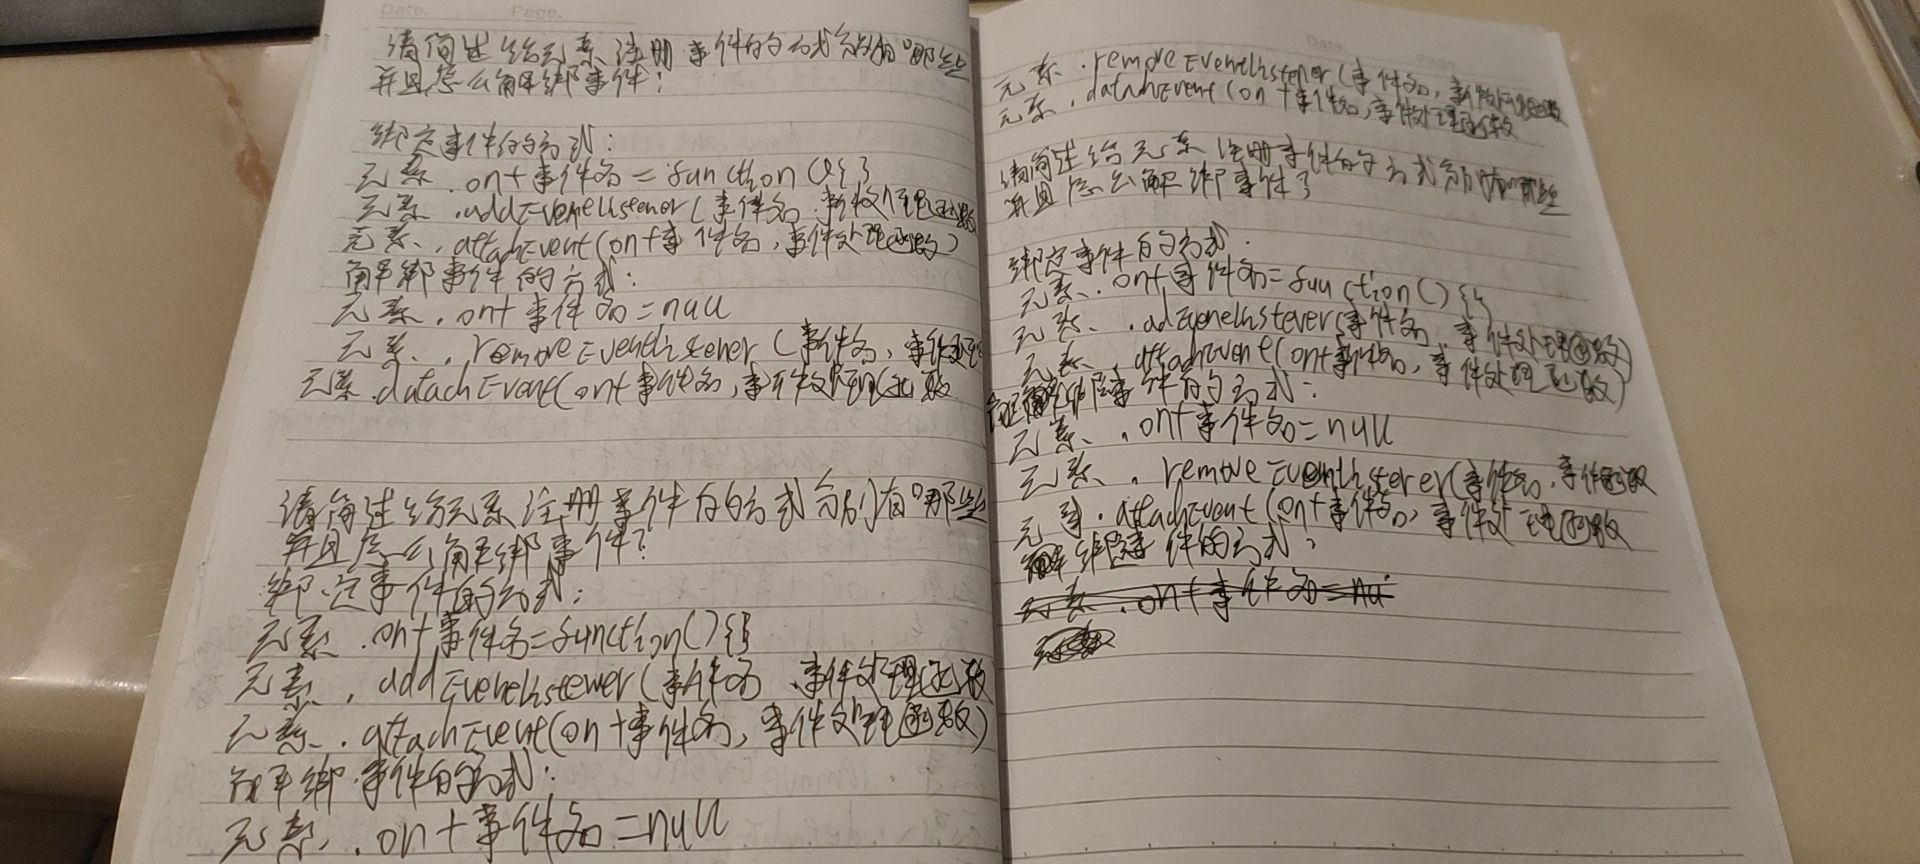 Date. Page.
请简述给元素注册事件的方式分别有哪些
并且怎么解绑事件?
绑定事件的方式:
元素.on+事件名=function(){}
元素.addEvenelistener(事件名,事件处理函数
元素.attachEvent(on+事件名,事件处理函数)
解绑事件的方式:
元素.on+事件名=null
元素.removeEventlistener(事件名,事件处理
元素.datachEvent(on+事件名,事件处理函数
请简述给元素注册事件的方式分别有哪些
并且怎么解绑事件?
绑定事件的方式:
元素.on+事件名=function(){}
元素.addEvenelistewer(事件名,事件处理函数
元素.attachEvent(on+事件名,事件处理函数)
解绑事件的方式:
元素.on+事件名=null
Date. Page.
元素.removeEventlistener(事件名,事件处理函数
元素.datachEvent(on+事件名,事件处理函数
请简述给元素注册事件的方式分别有哪些
并且怎么解绑事件?
绑定事件的方式.
元素.on+事件名=fuuction(){}
元素.adEvenelistever(事件名,事件处理函数)
元素.attachEvent(on+事件名,事件处理函数)
解绑事件的方式:
元素.on+事件名=null
元素.removeEventlisterer(事件名,事件函数
元素.attachEvent(on+事件名,事件处理函数
解绑事件的方式:
元素.on+事件名=nu